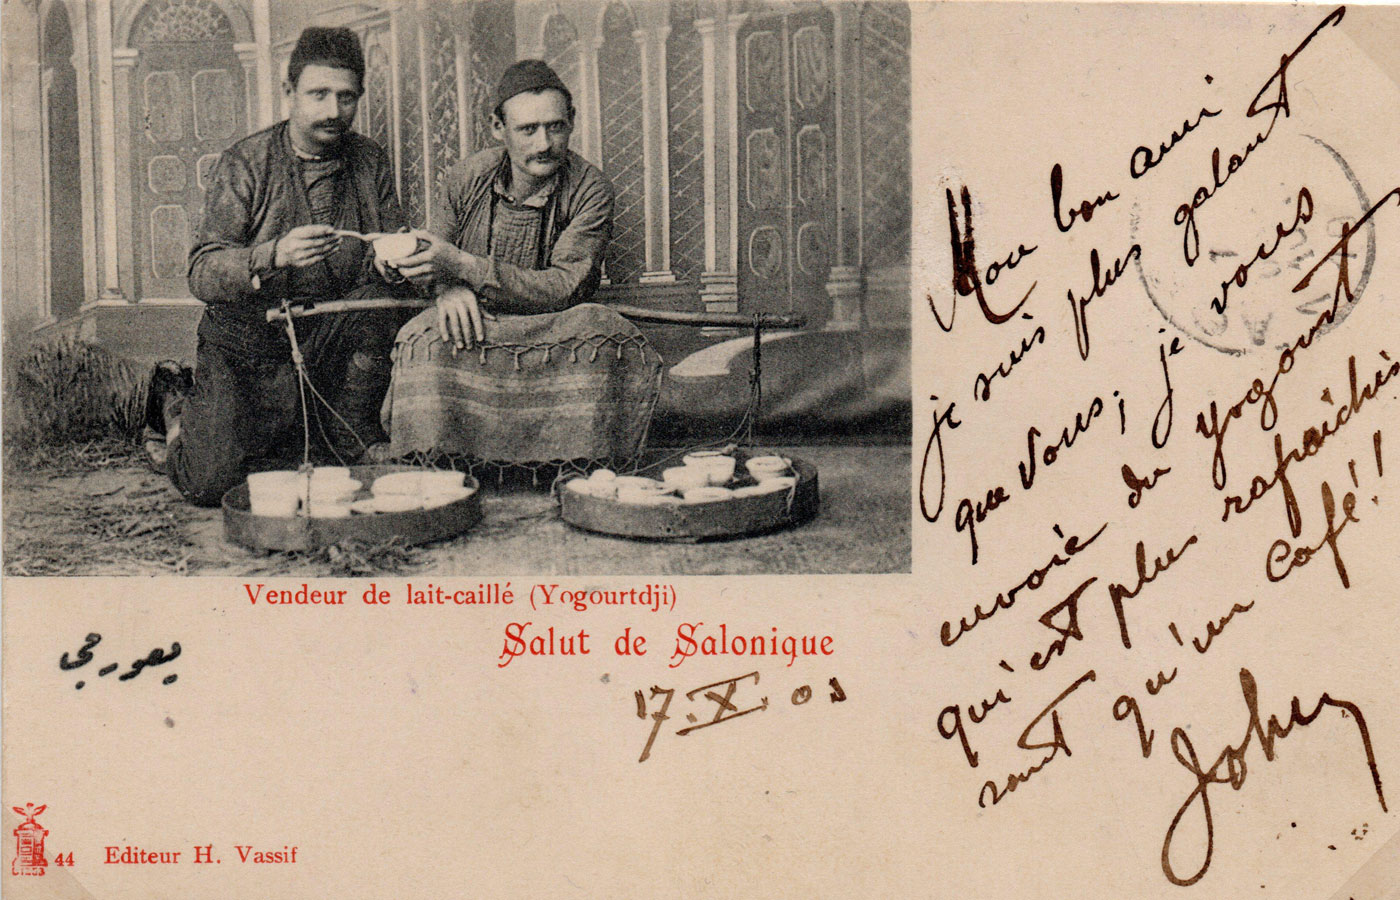 Mon bon ami
je suis plus galant
que vous; je vous
envoie du yogourt
qui est plus rafraichis
sant qu'un café!!
John
Vendeur de lait-caillé (Yogourtdji)
Salut de Salonique
17.X.01
44 Editeur H. Vassif